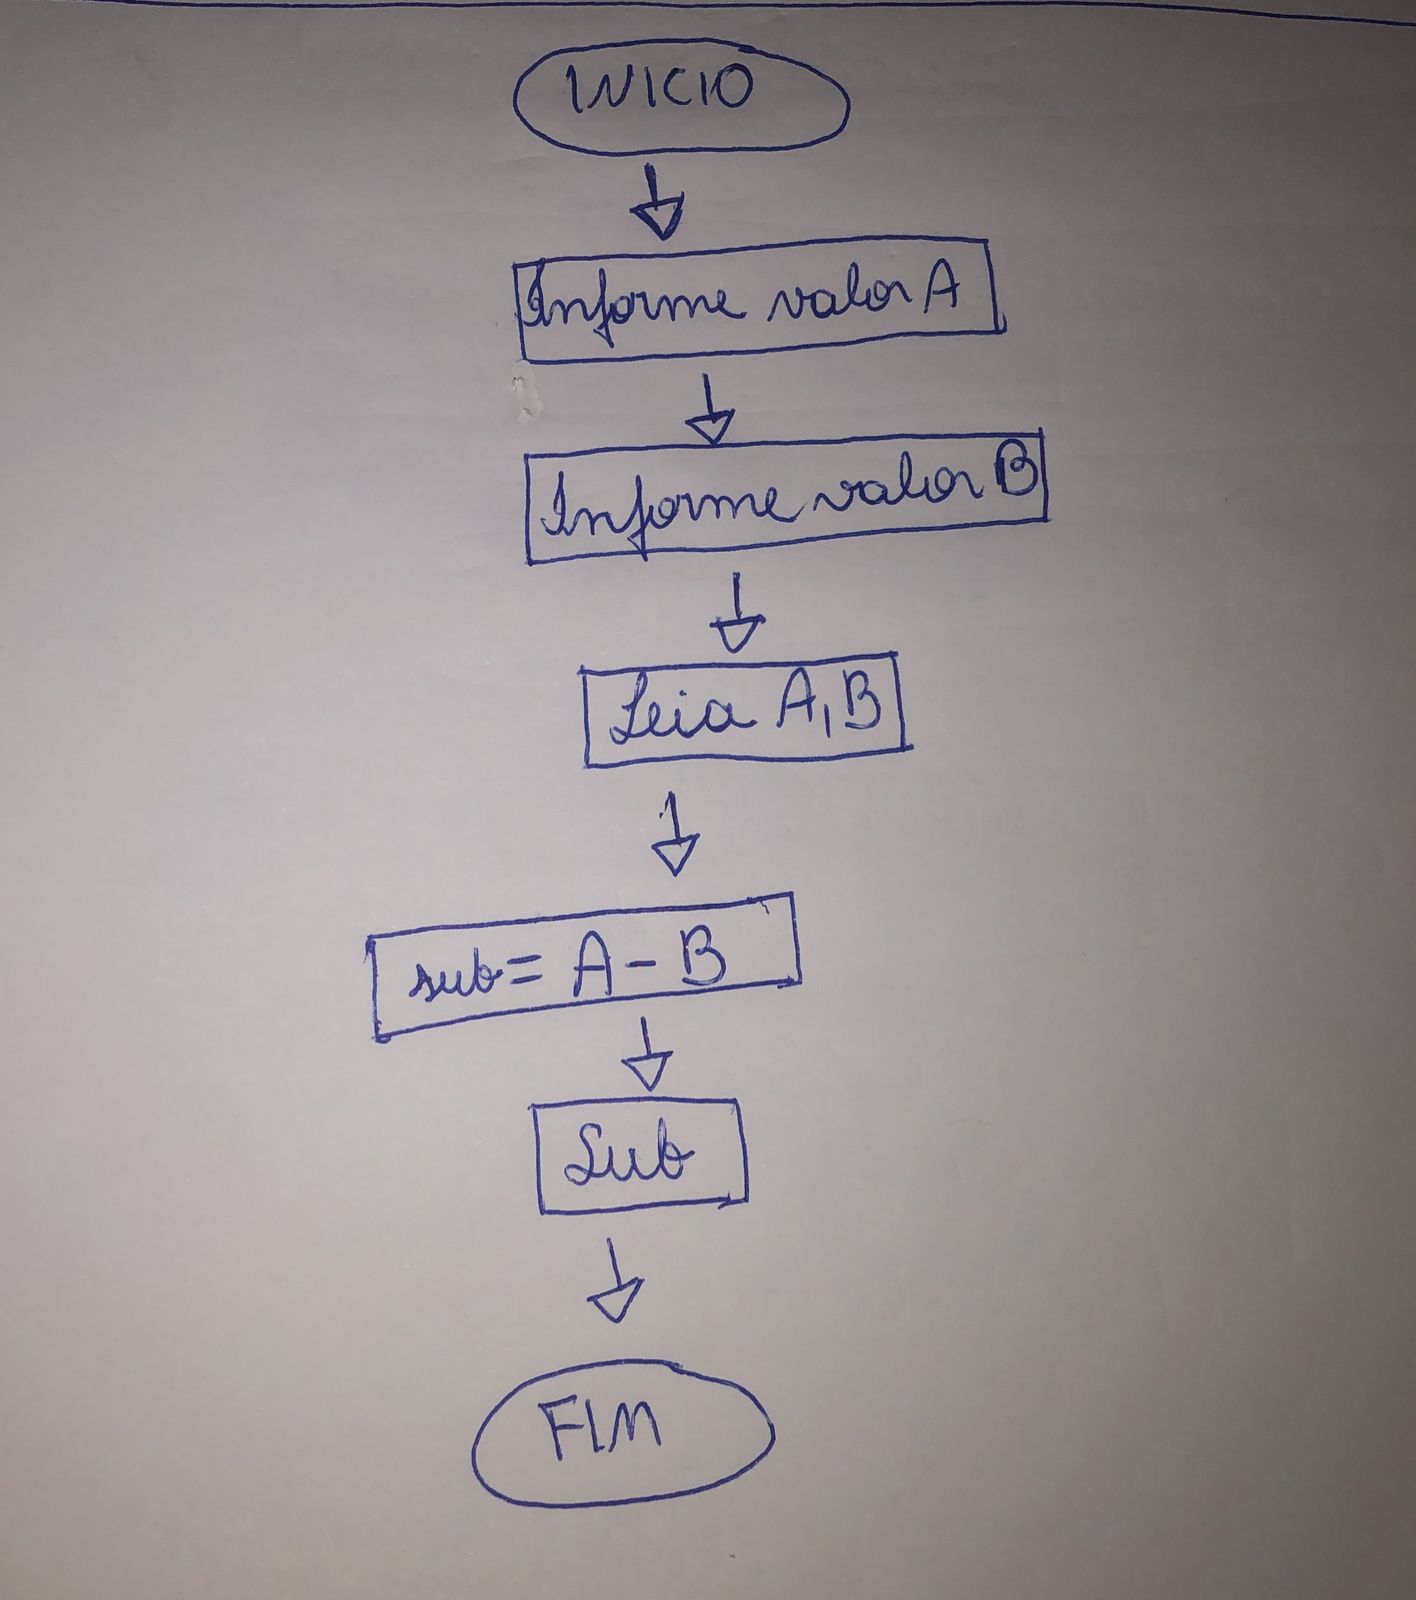 INICIO
Informe valor A
Informe valor B
Leia A, B
sub = A - B
Sub
FIM